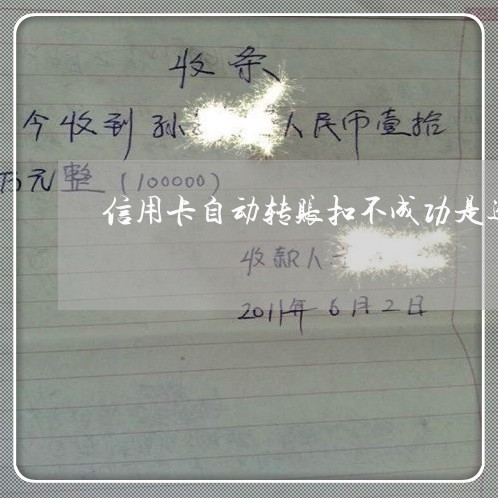 收条
今收到孙 人民币壹拾
万元整（100000）
信用卡自动转账扣不成功是
收款人
2011年6月2日